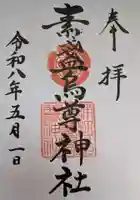 奉拝
素盞嗚尊神社
令和八年五月一日